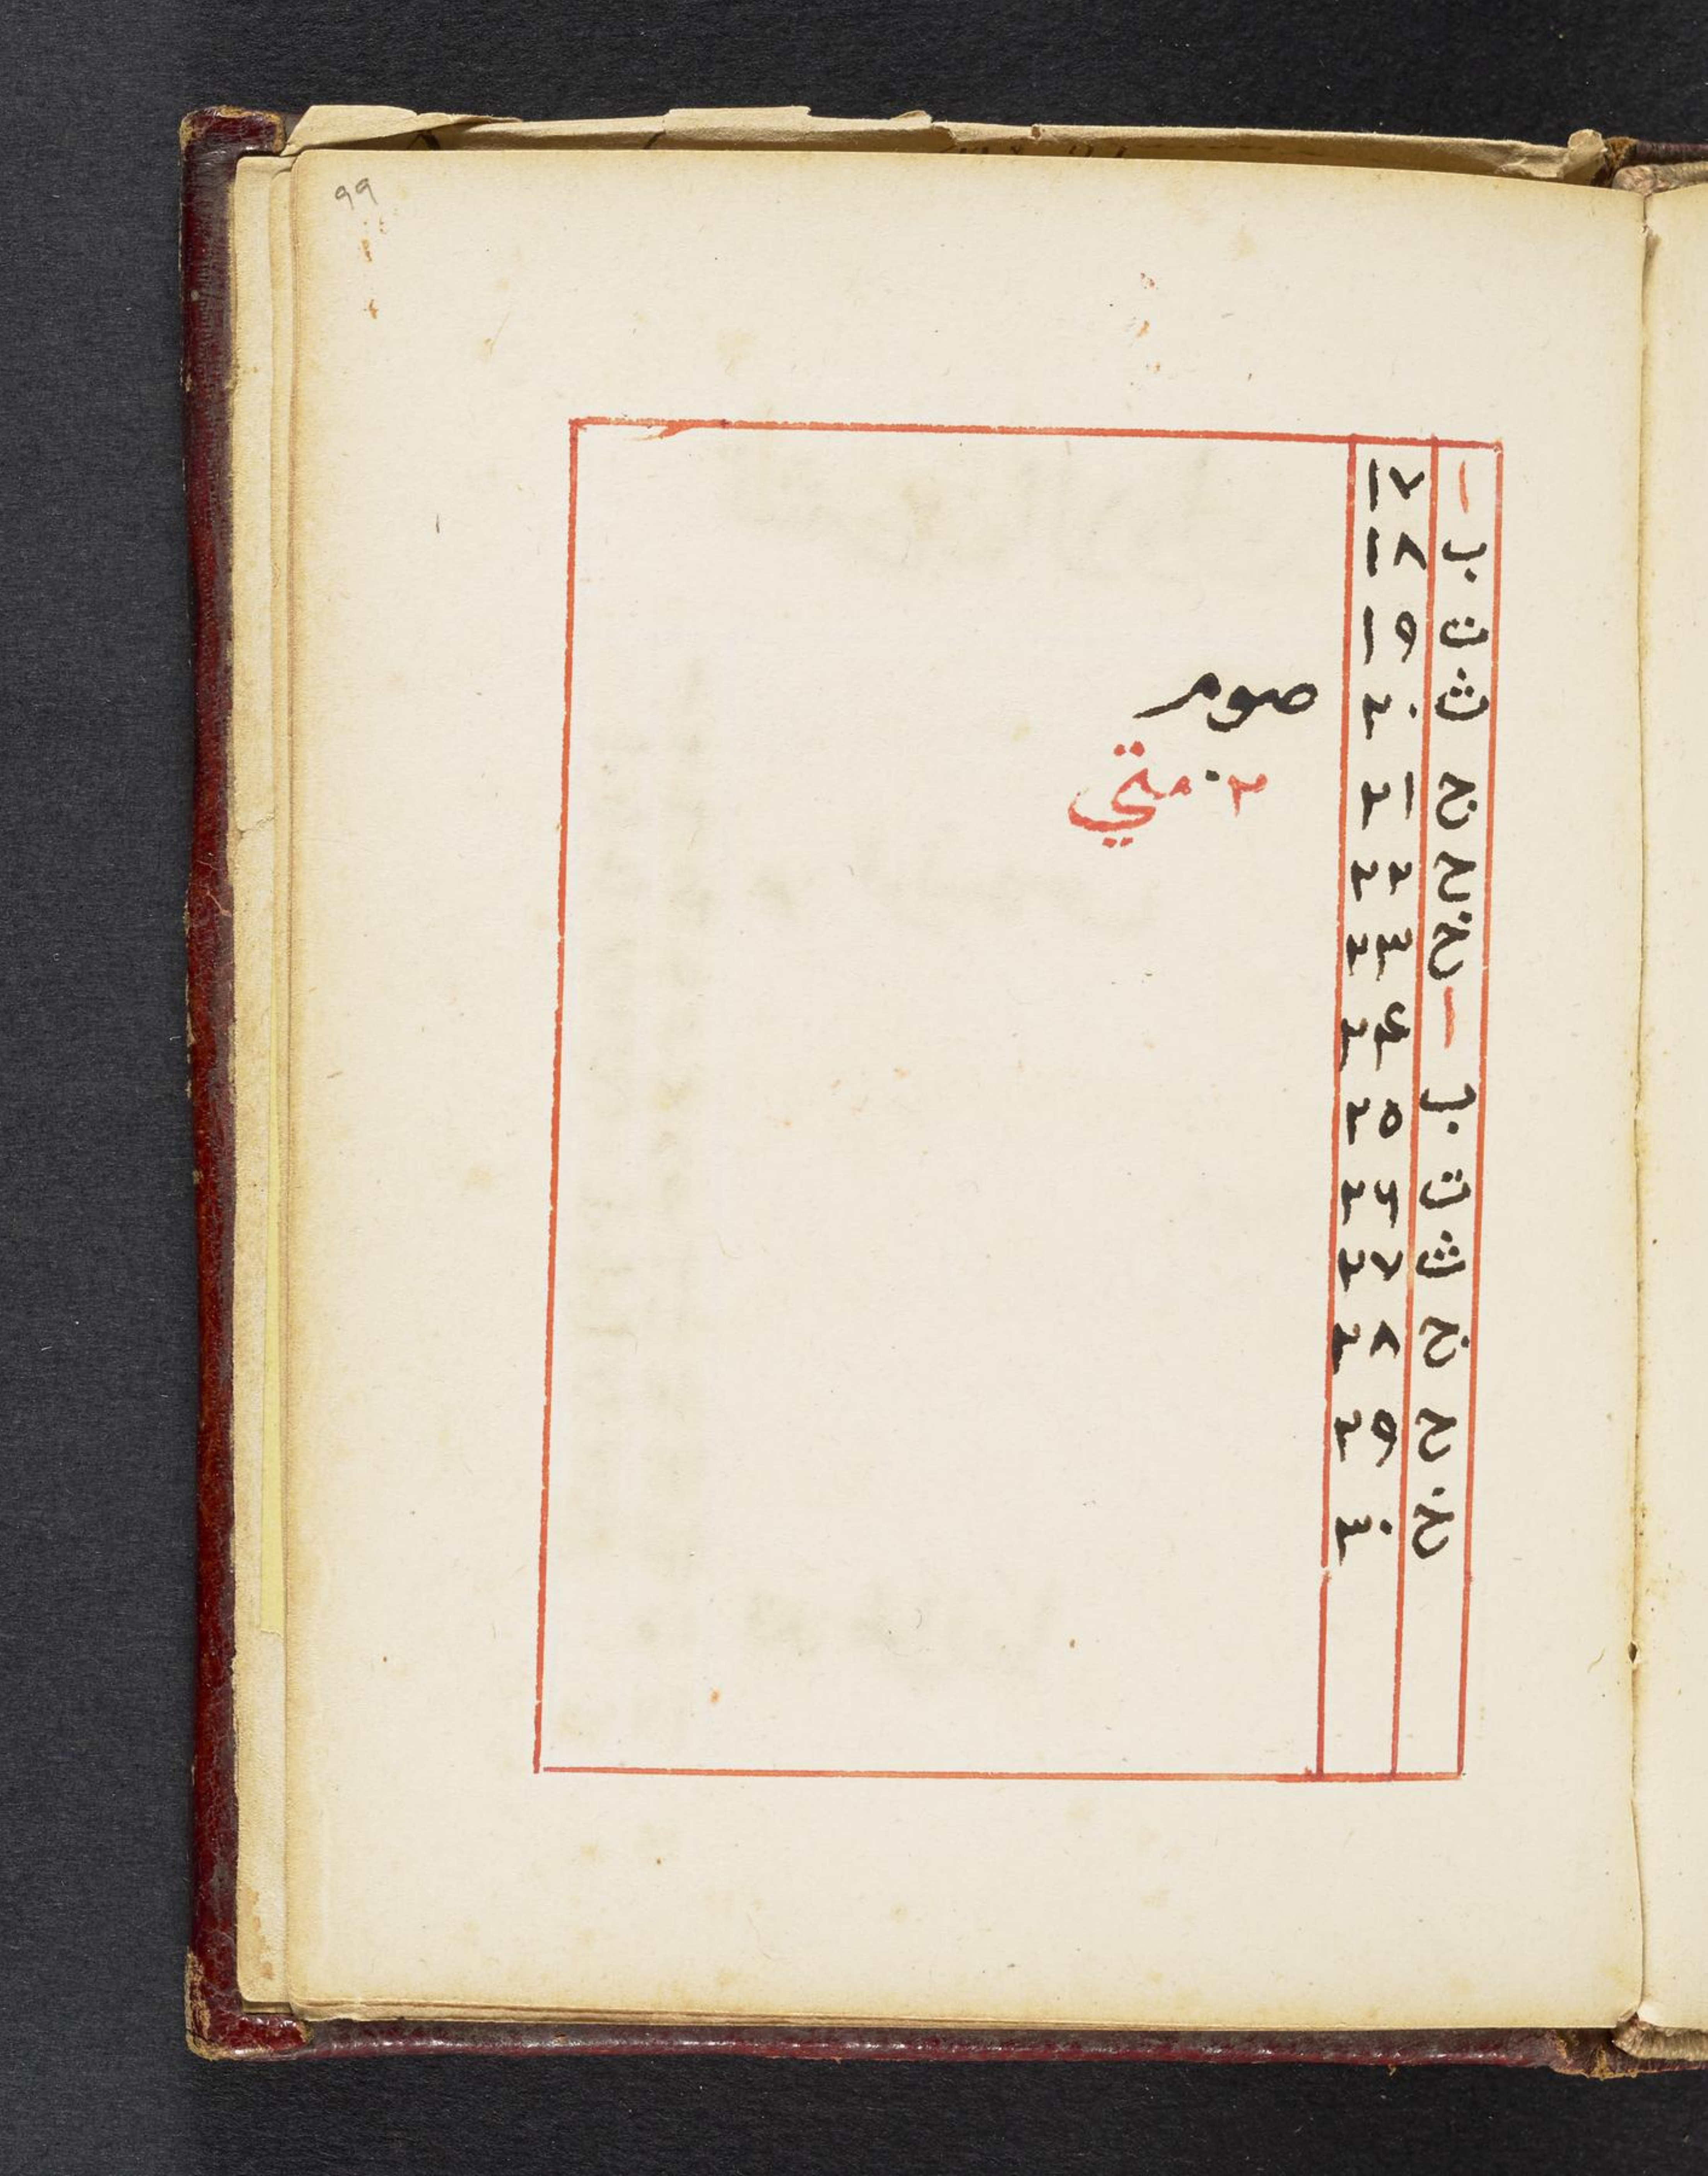 99
ا ١٧
ب ١٨
ت ١٩
ث ٢٠ صوم
ج ٢١ ٢٠ متي
ح ٢٢
خ ٢٣
ا ٢٤
ب ٢٥
ت ٢٦
ث ٢٧
ج ٢٨
ح ٢٩
خ ٣٠